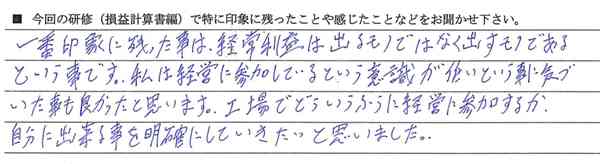 ■ 今回の研修（損益計算書編）で特に印象に残ったことや感じたことなどをお聞かせ下さい。
一番印象に残った事は、経常利益は出るモノではなく出すモノである
という事です。私は経営に参加しているという意識が低いという事に気づ
いた事も良かったと思います。工場でどういうふうに経営に参加するか、
自分に出来る事を明確にしていきたいと思いました。